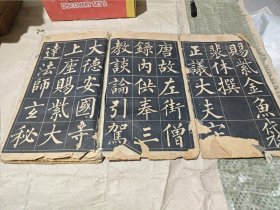 DISCOVERY SET 2
賜紫金魚袋
裴休撰
正議大夫守
唐故左街僧
錄內供奉三
教談論引駕
大德安國寺
上座賜紫大
達法師玄秘